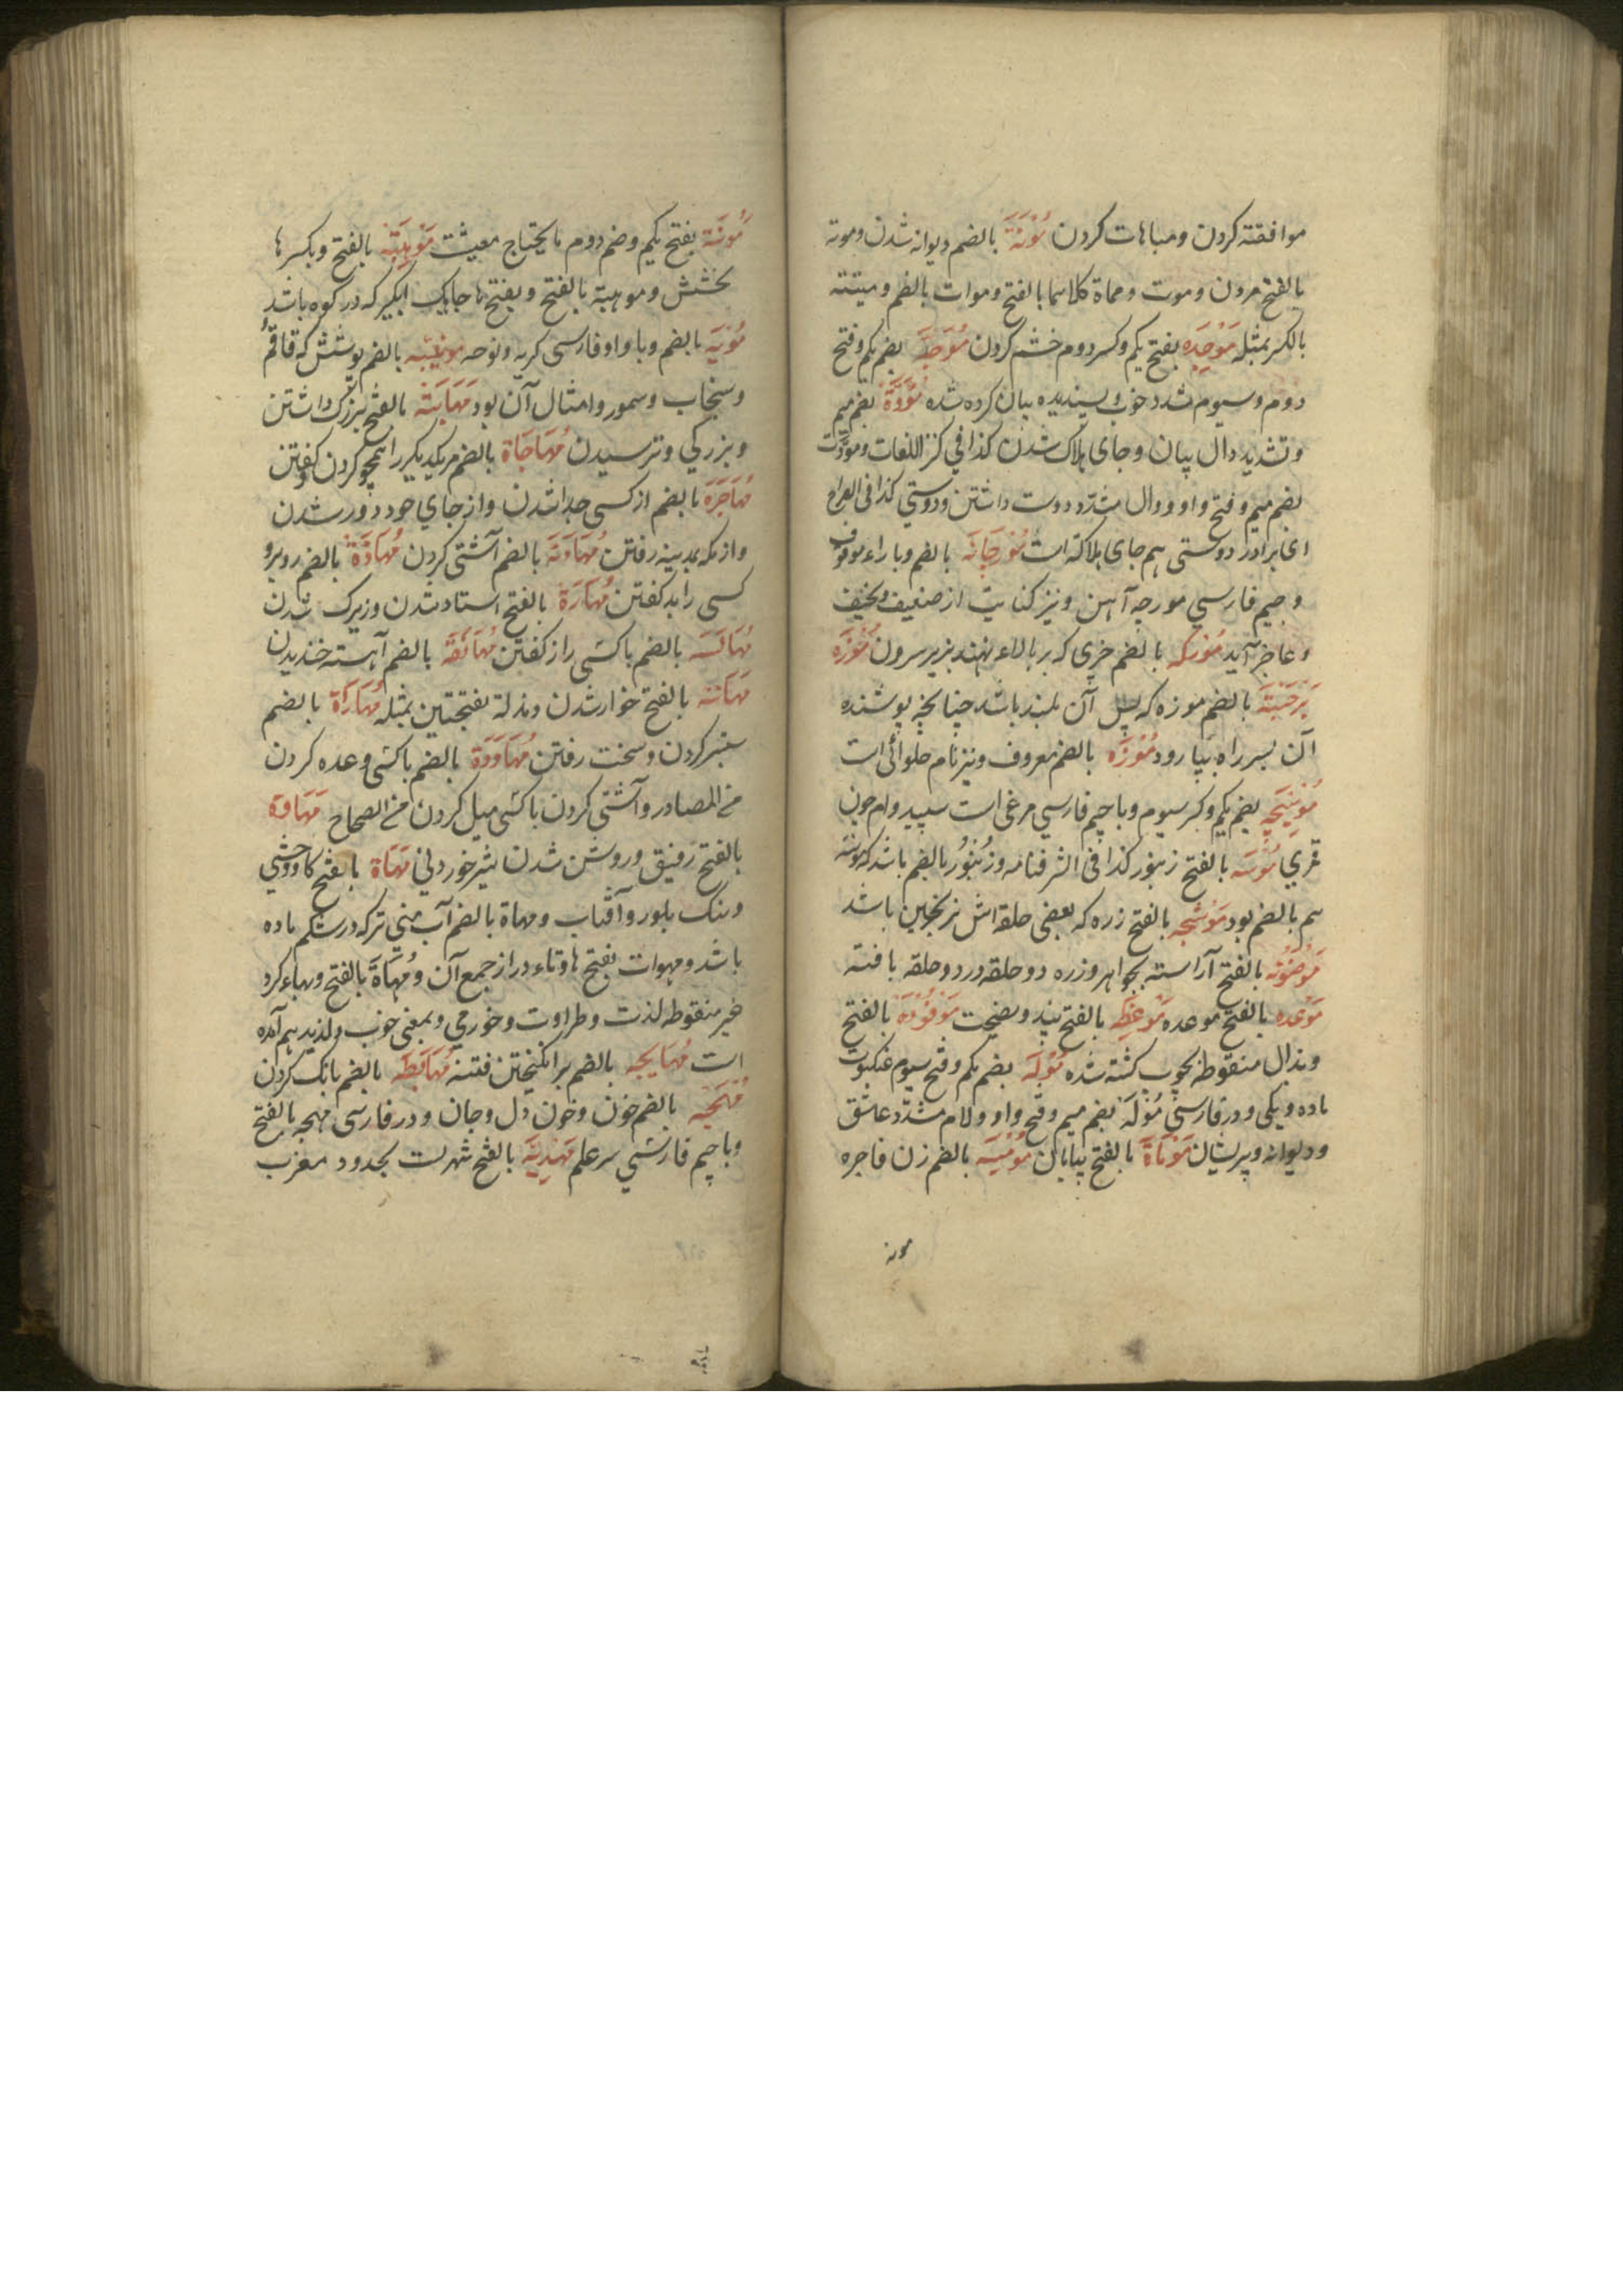 موافقته کردن ومباهات کردن مُوْتَةَ بالضم دیوانه شدن وموته
بالفتح مردن وموت ومماة کلاهما بالفتح وموات بالضم ومیتته
بالکسر بمثله مَوْجِدَه بفتح یکم وکسر دوم خشم کردن مُوَجَّهَ بضم یکم وفتح
دوم وسیوم مشدد خوب وپسندیده بیان کرده شده مُوَدَّةَ بضم میم
وتشدید دال بیان وجای هلاک شدن کذا فی کنز اللغات ومودّت
بضم میم وفتح واو ودال مشدّد دوست داشتن ودوستی کذا فی
ای برادر دوستی هم جای هلاکت است مُوْرچَانَه بالضم وبا راء موقوف
وجیم فارسی مورچه آهن ونیز کنایت از ضعیف ونحیف
وعاجز آید بالضم چیزی که بر بالاء نهند بزیر سرون مُوْزَه
بالضم موزه که پس آن بلند باشد چنانچه پوشنده
آن بسر راه بیا رود مُوْزَه بالضم معروف ونیز نام حلوائی است
مُوْسِیْچَه بضم یکم وکسر سیوم وبا چیم فارسی مرغی است سپید وام چون
قمری مُوْسَه بالفتح زنبور کذا فی الشرفنامه وزُنْبُوْر بالضم باشد که موسه
هم بالضم بود مَوْشَجه بالفتح زره که بعضی حلقه اش زنجین باشد
مَوْضُوْنَه بالفتح آراسته بجواهر وزره دو حلقه در دو حلقه بافته
مَوْعِده بالفتح موعده مَوْعِظَه بالفتح پند ونصیحت مَوْقُوْدَة بالفتح
وبذال منقوطه بچوب کشته شده مُوْلَه بضم یکم وفتح سیوم عنکبوت
ماده ویکی ودر فارسی مُوَلَّه بضم میم وفتح واو ولام مشدّد عاشق
ودیوانه وپریشان مَوْمَاةَ بالفتح بیابان مُوْمِسَه بالضم زن فاجره
مونه
مُونَة بفتح یکم وضم دوم مایحتاج معیشت مَوْهِبَتَه بالفتح وبکسر ها
بخشش وموهبة بالفتح وبفتح ها جایک ابگیر که در کوه باشد
مُوْیَه بالضم وبا واو فارسی گریه ونوحه موئینه بالضم پوشش که قاقُم
وسنجاب وسمور وامثال آن بود مَهَابَتَه بالفتح بزرگ داشتن
وبزرگی وترسیدن مُهَاجَاة بالضم مر یکدیگر را هجو کردن وگفتن
مُهَاجَرَه بالضم از کسی جدا شدن واز جای خود دور شدن
واز مکه بمدینه رفتن مُهَاوَنَه بالضم آشتی کردن بالضم روبرو
کسی را بد گفتن مُهَارَة بالفتح استاد شدن وزیرک شدن
بالضم با کسی راز گفتن مُهَانَفَه بالضم آهسته خندیدن
مَهَانَتَه بالفتح خوار شدن ومذلة بفتحتین بمثله بالضم
کردن وسخت رفتن مُهَاوَدَة بالضم با کسی وعده کردن
من المصادر وآشتی کردن با کسی میل کردن من الصحاح
بالفتح رقیق وروشن شدن شیر خوردنی مَهَاة بالفتح گاو وحشی
وسنک بلور وآفتاب ومهاة بالضم آب منی تر که در شکم ماده
باشد ومهوات بفتح ها وتاء دراز جمع آن ومُهَنَّاة بالفتح
غیر منقوطه لذت وطراوت وخورمی وبمعنی خوب ولذیذ هم آمده
است مُهَایجه بالضم برانگیختن فتنه بالضم بانگ کردن
مُهْجَه بالضم خون وخون دل وجان ودر فارسی مهچه بالفتح
وبا چیم فارسی سر علم مَهْدِیَّه بالفتح شهریست بحدود مغرب